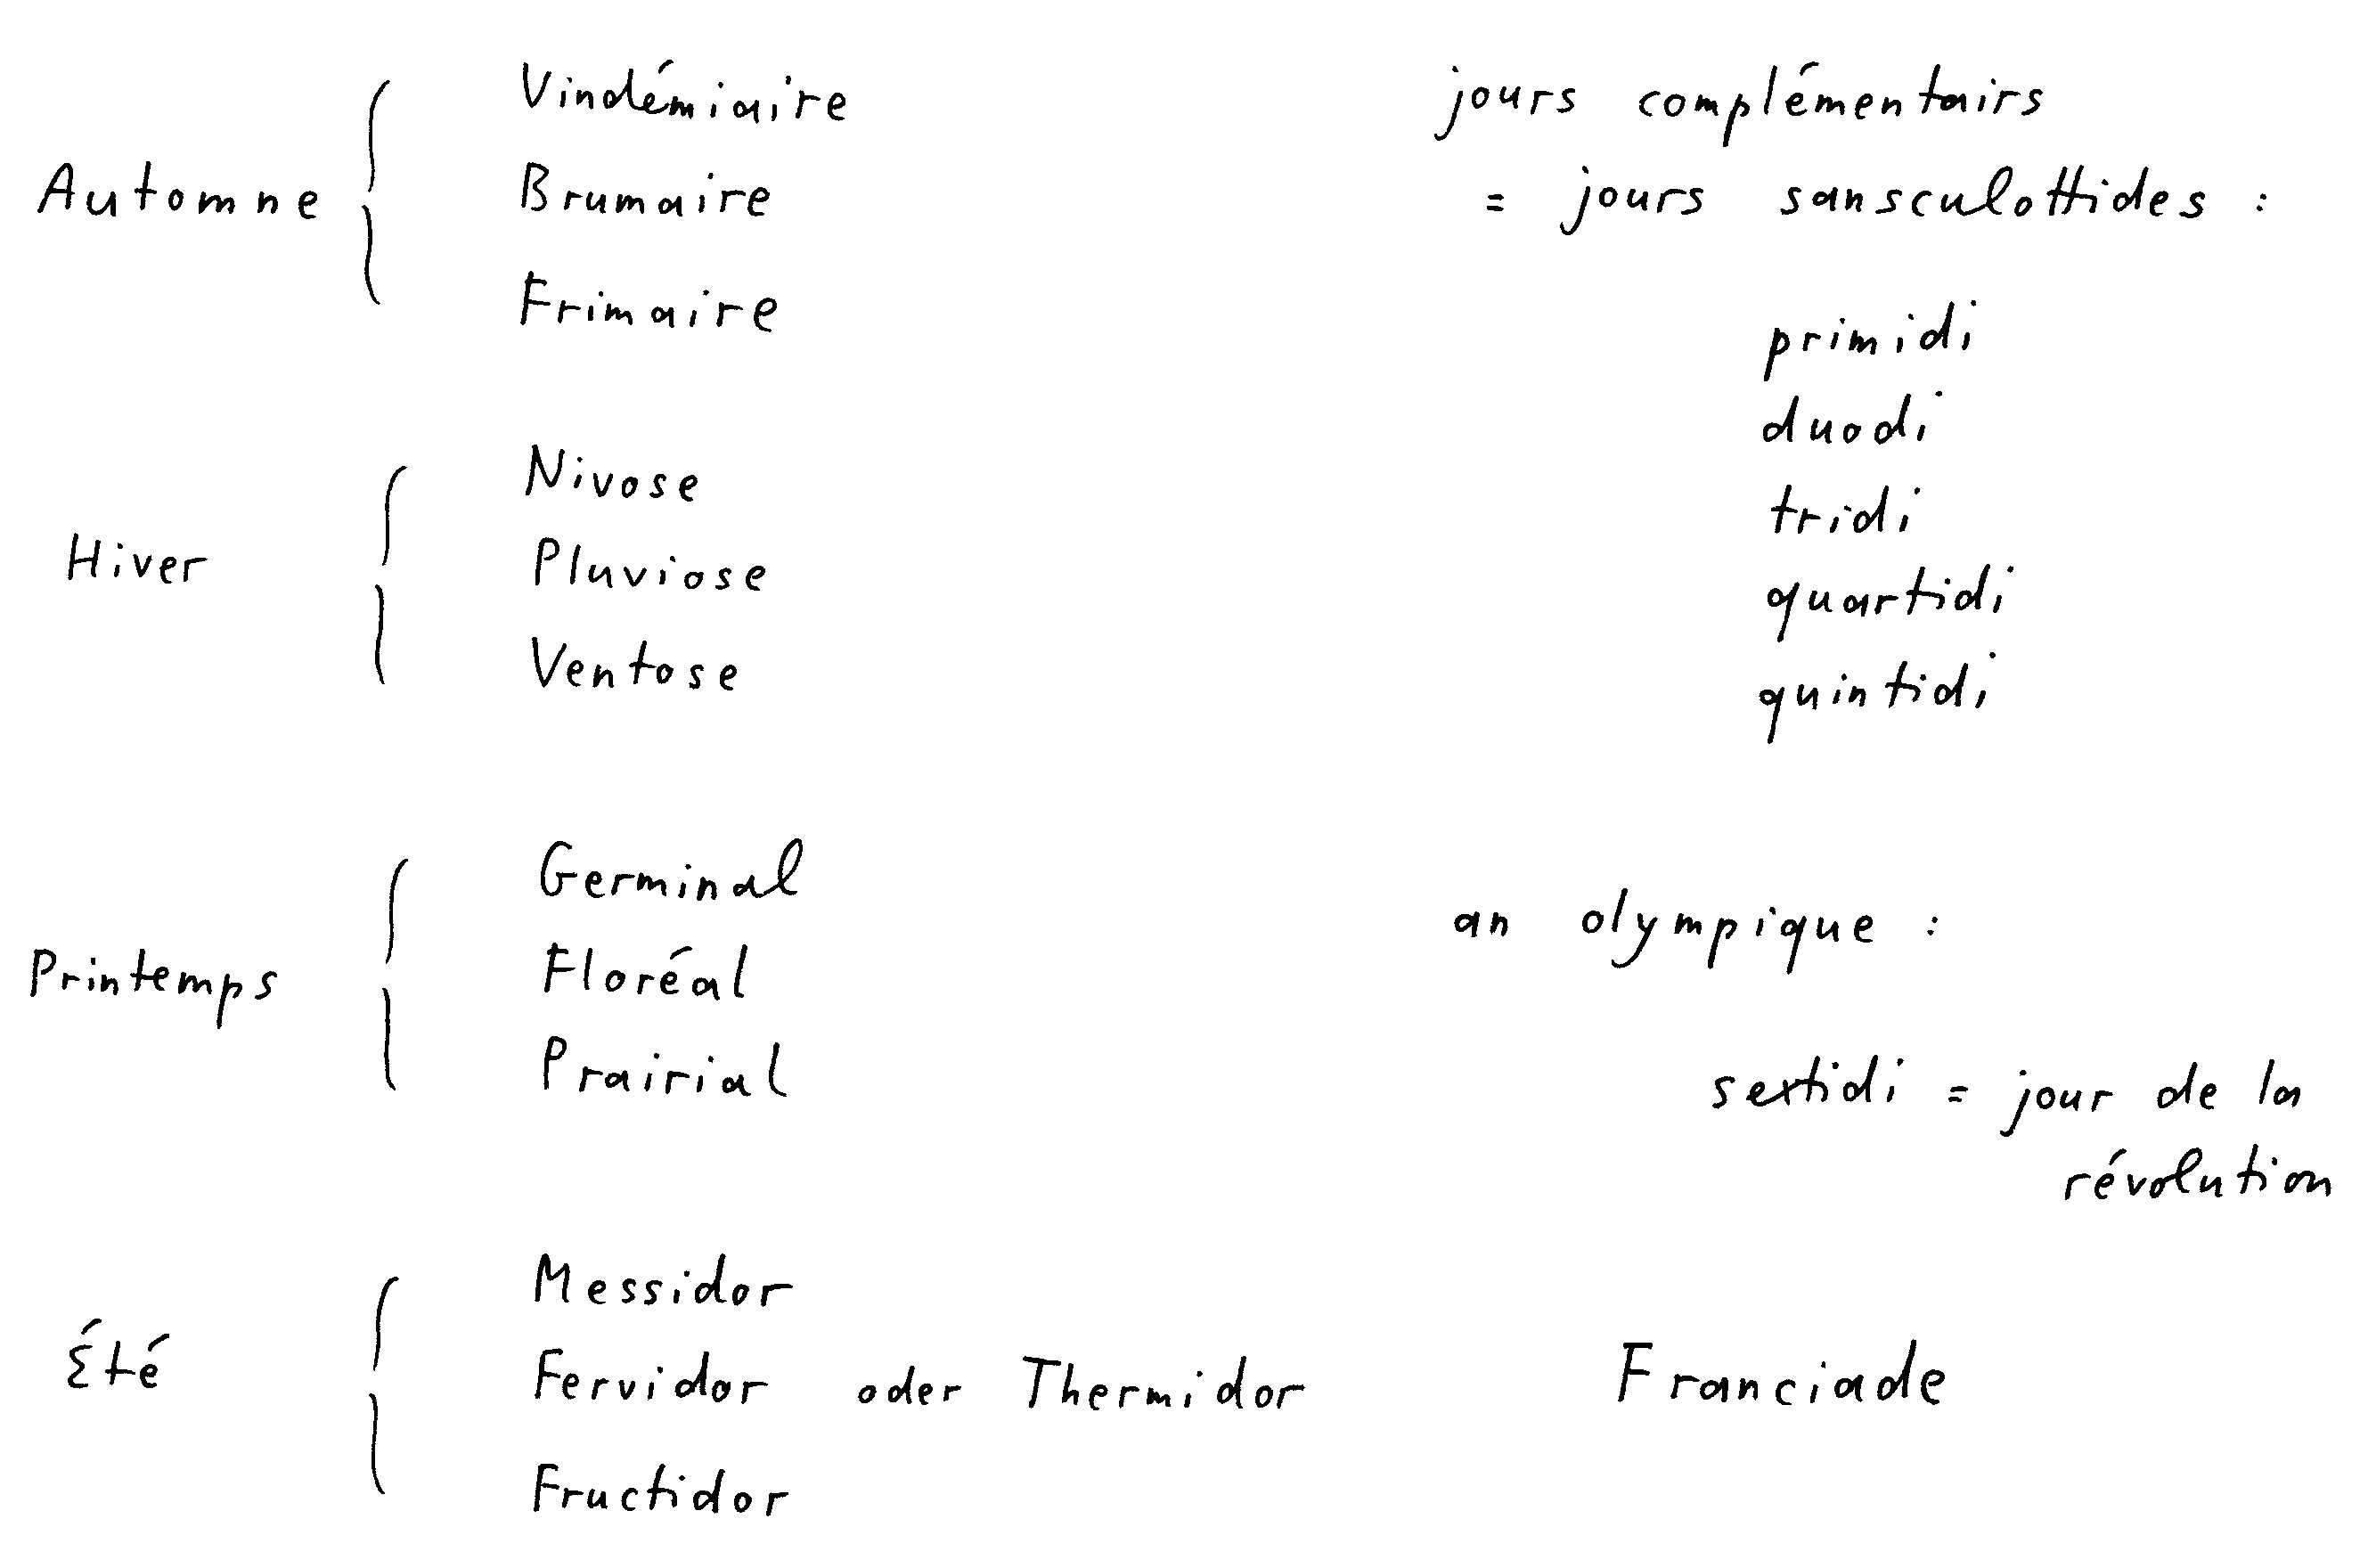 Vindémiaire
Automne
Brumaire
Frimaire
Nivose
Hiver
Pluviose
Ventose
Germinal
Printemps
Floréal
Prairial
Messidor
Été
Fervidor oder Thermidor
Fructidor
jours complémentairs
= jours sansculottides :
primidi
duodi
tridi
quartidi
quintidi
an olympique :
sextidi = jour de la
révolution
Franciade